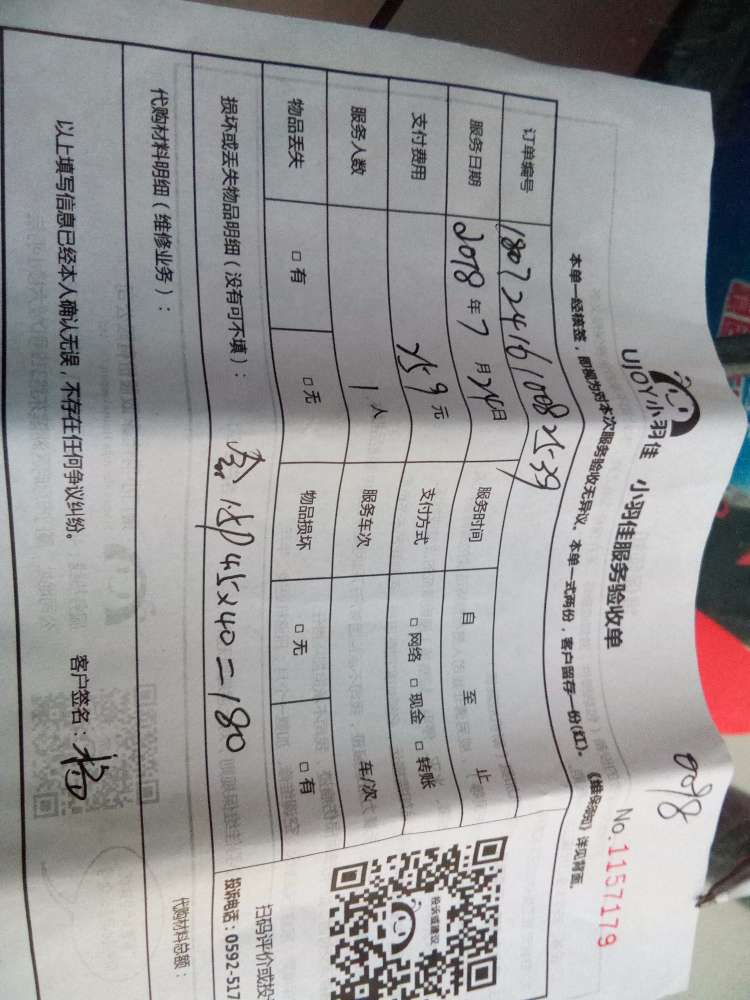 UJOY小羽佳 小羽佳服务验收单
0098
No.1157179
本单一经核签，即视为对本次服务验收无异议、本单一式两份，客户留存一份(红)。
详见背面
订单编号
服务日期 2018年7月24日 服务时间 自 至 止
支付费用 元 支付方式 □网络 □现金 □转账
服务人数 1人 服务车次 车/次
物品丢失 □有 □无 物品损坏 □无 □有
损坏或丢失物品明细（没有可不填）：
45×40=180
代购材料明细（维修业务）：
代购材料总额：
以上填写信息已经本人确认无误，不存在任何争议纠纷。 客户签名：杨
投诉或建议
扫码评价或投
投诉电话：0592-517